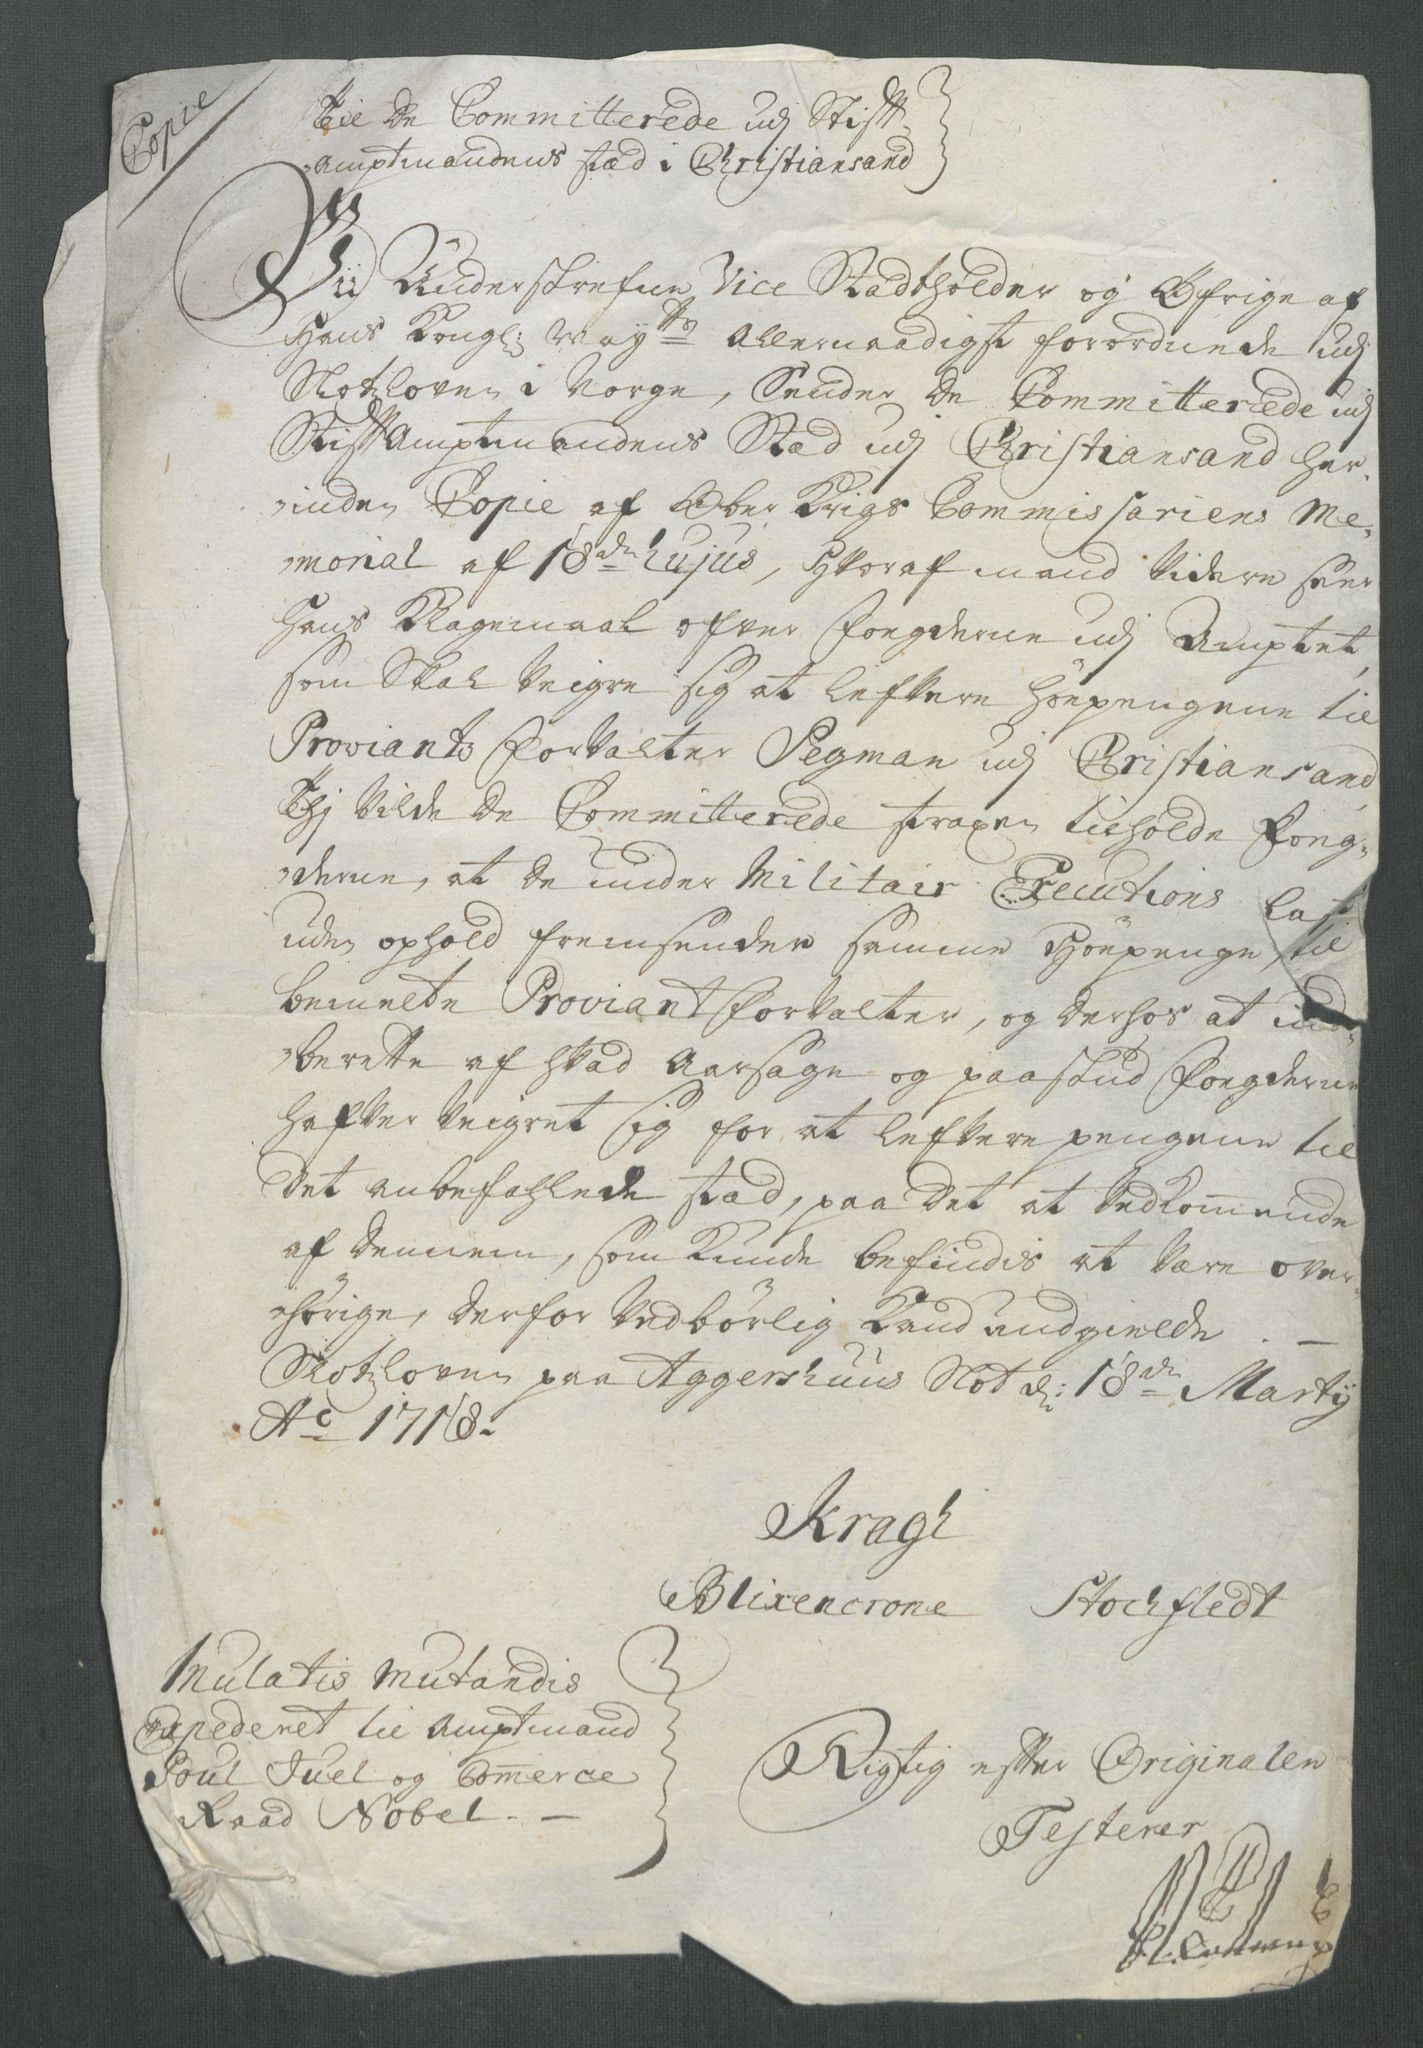 Copie
Til De Committerede udj Stifft
amptmandens stæd i Christiansand
Vii Underskrefne Vice Stadtholder og Øfrige af
Hans Kongl: May:tts Allernaadigst forordnede udj
Slotzloven i Norge, Sender de Committerede udj
StifftAmptmandens Stæd udj Christiansand her-
inden Copie af Ober Krigs Commissariens Me-
morial af 18de hujus, Hvoraf mand videre seer
hans Klagemaal ofver Fougderne udj Amptet,
som Skal veigre sig at lefvere Höepengene til
Proviants Forvalter Segman udj Christiansand,
Thj vilde de Committerede straxen tilholde Foug-
derne, at de under Militair Executions
uden ophold fremsender samme Höepenge til
bemelte Proviant Forvalter, og derhos at ind-
berette af hvad Aarsage og paaskud Fougderne
hafver veigret sig for at lefvere pengene til
det anbefahlede stæd, paa det at vedkommende
af dennem, som kunde befindis at være over-
hörige, derfor vedbörlig kand undgielde. —
Slotzloven paa Aggershuus Slot d: 18de Marty
Ao 1718.
Kragh
Blixencrone Stochfledt
Mutatis Mutandis
Expederet til Amptmand
Poul Juel og Commerce
Raad Nobel. —
Rigtig efter Originalen
Testerer